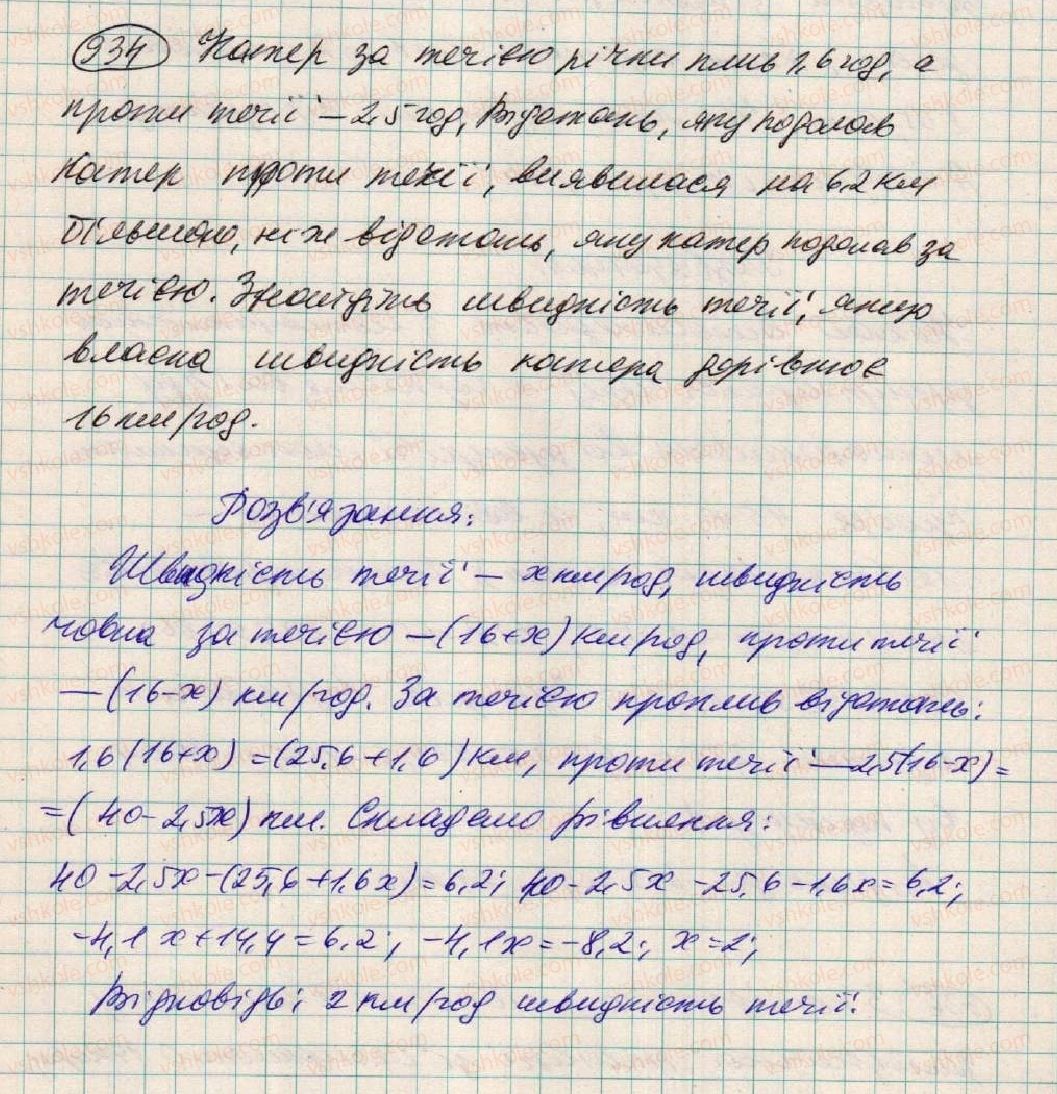 934 Катер за течією річки плив 1,6 год, а
проти течії – 2,5 год, Відстань, яку подолав
катер проти течії, виявилася на 6,2 км
більшою, ніж відстань, яку катер подолав за
течією. Знайдіть швидкість течії, якщо
власна швидкість катера дорівнює
16 км/год.
Розв'язання:
Швидкість течії – x км/год, швидкість
човна за течією – (16+x) км/год, проти течії
– (16-x) км/год. За течією проплив відстань:
1,6(16+x) = (25,6+1,6) км, проти течії – 2,5(16-x) =
= (40-2,5x) км. Складемо рівняння:
40-2,5x-(25,6+1,6x)=6,2; 40-2,5x-25,6-1,6x=6,2;
-4,1x+14,4=6,2; -4,1x=-8,2; x=2;
Відповідь: 2 км/год швидкість течії.